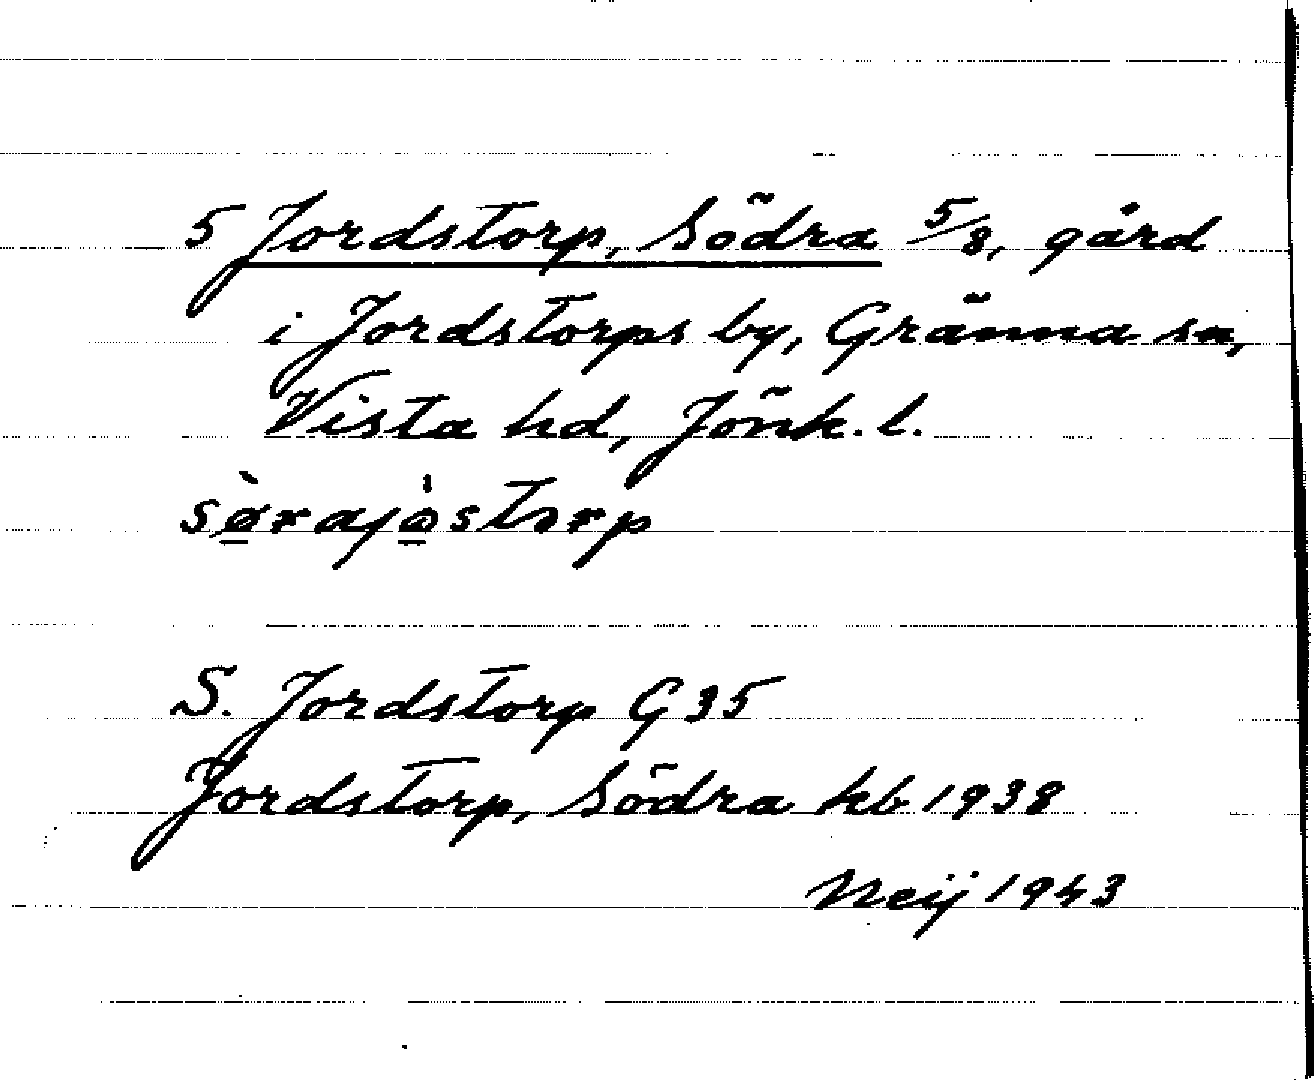 5 Jordstorp, Södra 5/8, gård
i Jordstorps by, Gränna sn,
Vista hd, Jönk. l.
sø̠̀rajø̠̀storp
S. Jordstorp G 35
Jordstorp, Södra kb 1938
Neij 1943